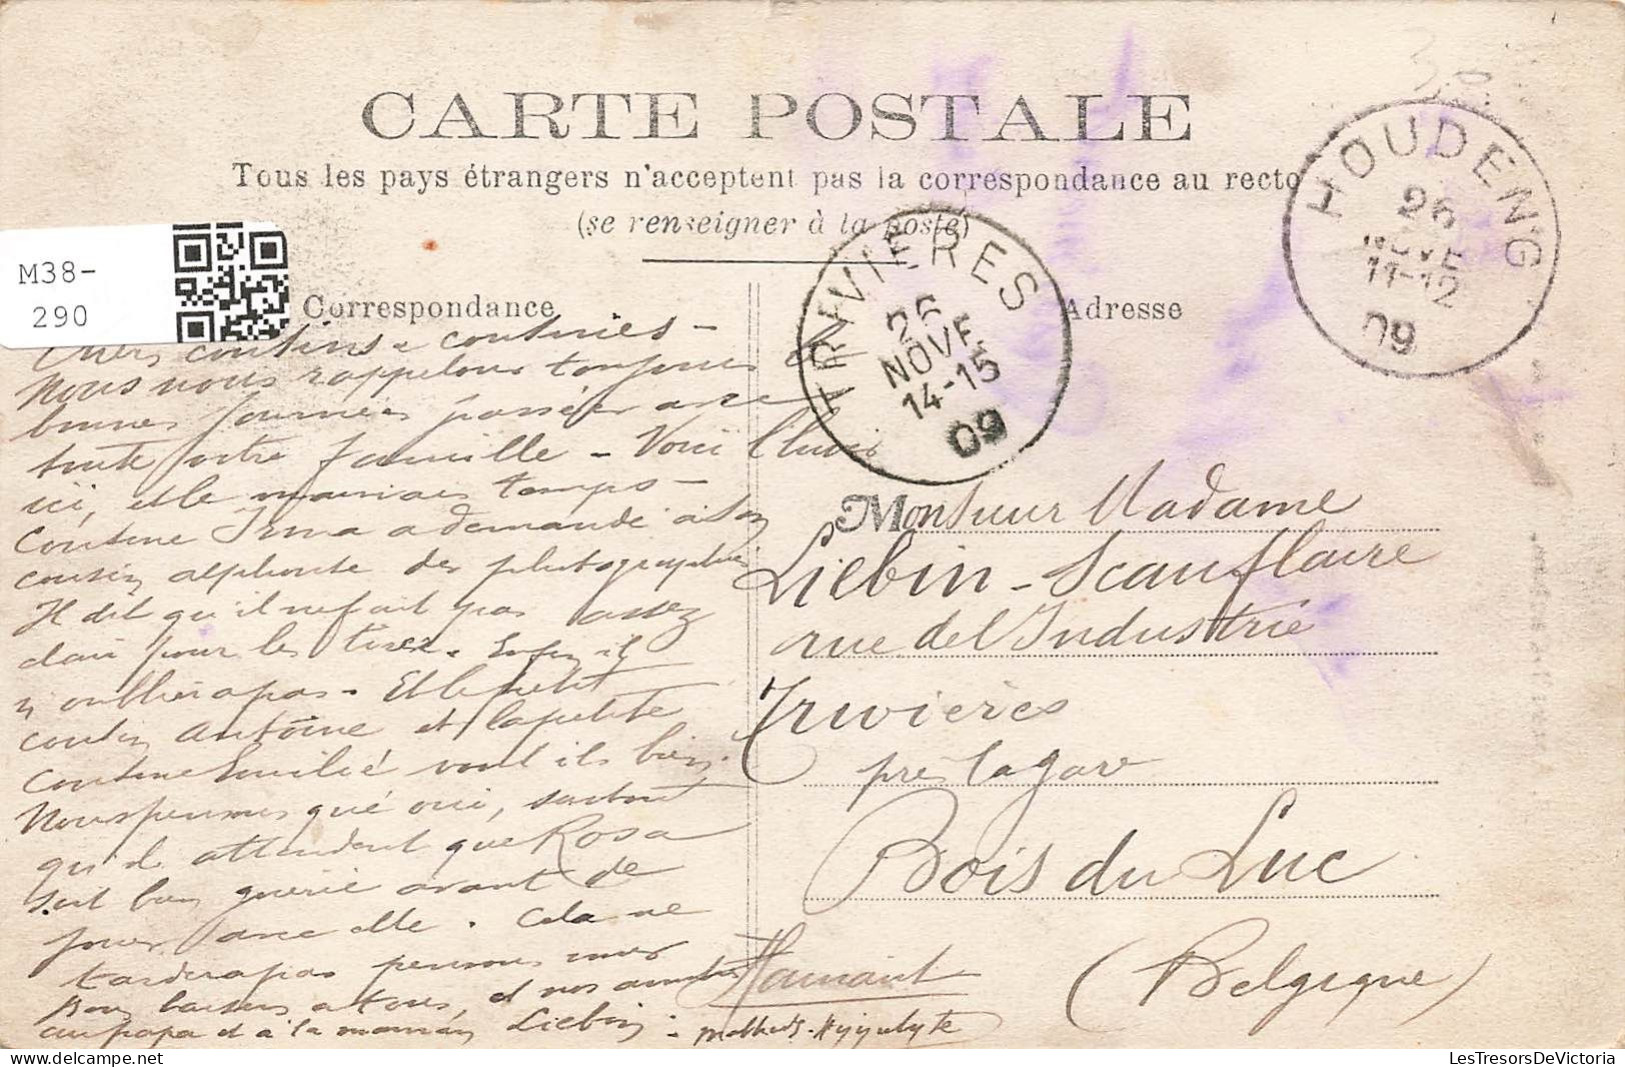 CARTE POSTALE
Tous les pays étrangers n'acceptent pas la correspondance au recto
(se renseigner à la poste)
M38-
290
Correspondance
Adresse
HOUDENG
26
NOVE
11-12
09
TRIVIERES
26
NOVE
14-15
09
Chers cousins & cousines -
Nous nous rappelons toujours
bonnes journées passées avec
toute votre famille - Voici l'hiver
ici, et le mauvais temps -
Cousine Irma a demandé à son
cousin alphonse des photographies
Il dit qu'il ne fait pas assez
clair pour les tirer. Enfin il
n'oubliera pas - Et le petit
cousin Antoine et la petite
cousine Emilie vont ils bien.
Nous pensons que oui, surtout
qu'ils attendent que Rosa
soit bien guérie avant de
jouer avec elle. Cela ne
tardera pas pensons nous
Bons baisers a tous, et nos amitiés
au papa et à la maman Liebin -
Hainaut
Monsieur Madame
Liebin - Scauflaire
rue de l'Industrie
Trivières
près la gare
Bois du Luc
(Belgique)
LesTresorsDeVictoria.com